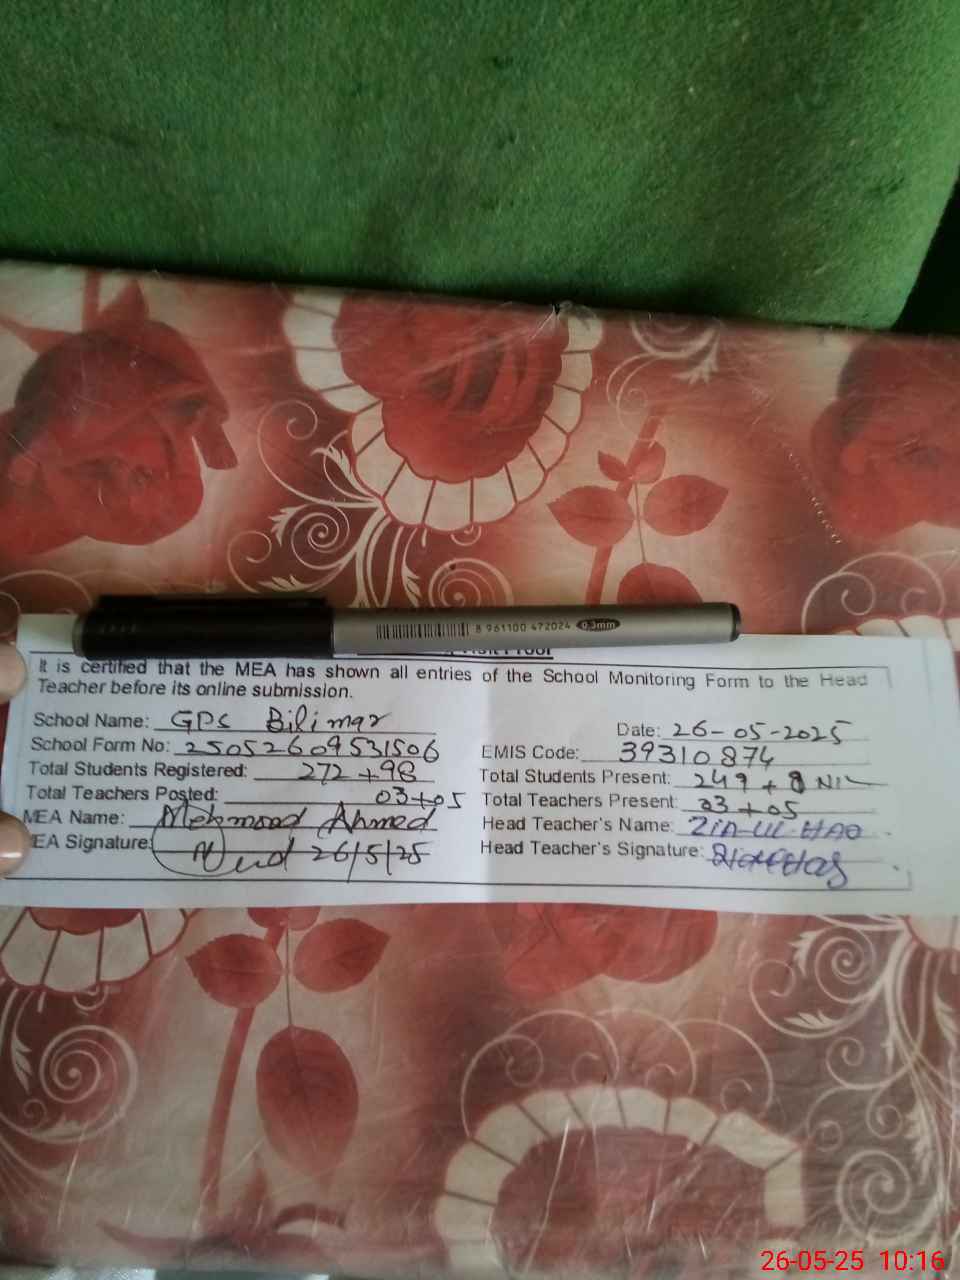 8 961100 472024 0.3mm
Visit Proof
It is certified that the MEA has shown all entries of the School Monitoring Form to the Head
Teacher before its online submission.
School Name: GPS Bilimar Date: 26-05-2025
School Form No: 25052609531506 EMIS Code: 39310874
Total Students Registered: 272 + 98 Total Students Present: 249 + NIL
Total Teachers Posted: 03+05 Total Teachers Present: 03+05
MEA Name: Mehmood Ahmed Head Teacher's Name: Zia-Ul-HAQ
EA Signature: 26/5/25 Head Teacher's Signature:
26-05-25 10:16